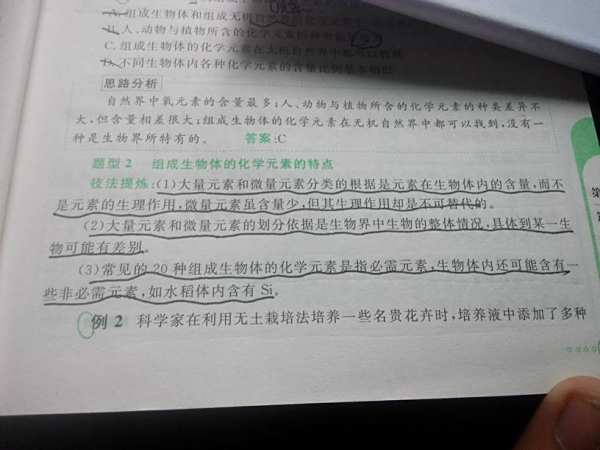 A. 组成生物体和组成无机自然界的化学元素中
B. 人、动物与植物所含的化学元素的种类
C. 组成生物体的化学元素在无机自然界中都可以找到
D. 不同生物体内各种化学元素的含量比例基本相似
思路分析
自然界中氧元素的含量最多;人、动物与植物所含的化学元素的种类差异不
大,但含量相差很大;组成生物体的化学元素在无机自然界中都可以找到,没有一
种是生物界所特有的。 答案:C
题型 2 组成生物体的化学元素的特点
技法提炼:(1)大量元素和微量元素分类的根据是元素在生物体内的含量,而不
是元素的生理作用,微量元素虽含量少,但其生理作用却是不可替代的。
(2)大量元素和微量元素的划分依据是生物界中生物的整体情况,具体到某一生
物可能有差别。
(3)常见的 20 种组成生物体的化学元素是指必需元素,生物体内还可能含有一
些非必需元素,如水稻体内含有 Si。
例 2 科学家在利用无土栽培法培养一些名贵花卉时,培养液中添加了多种
第